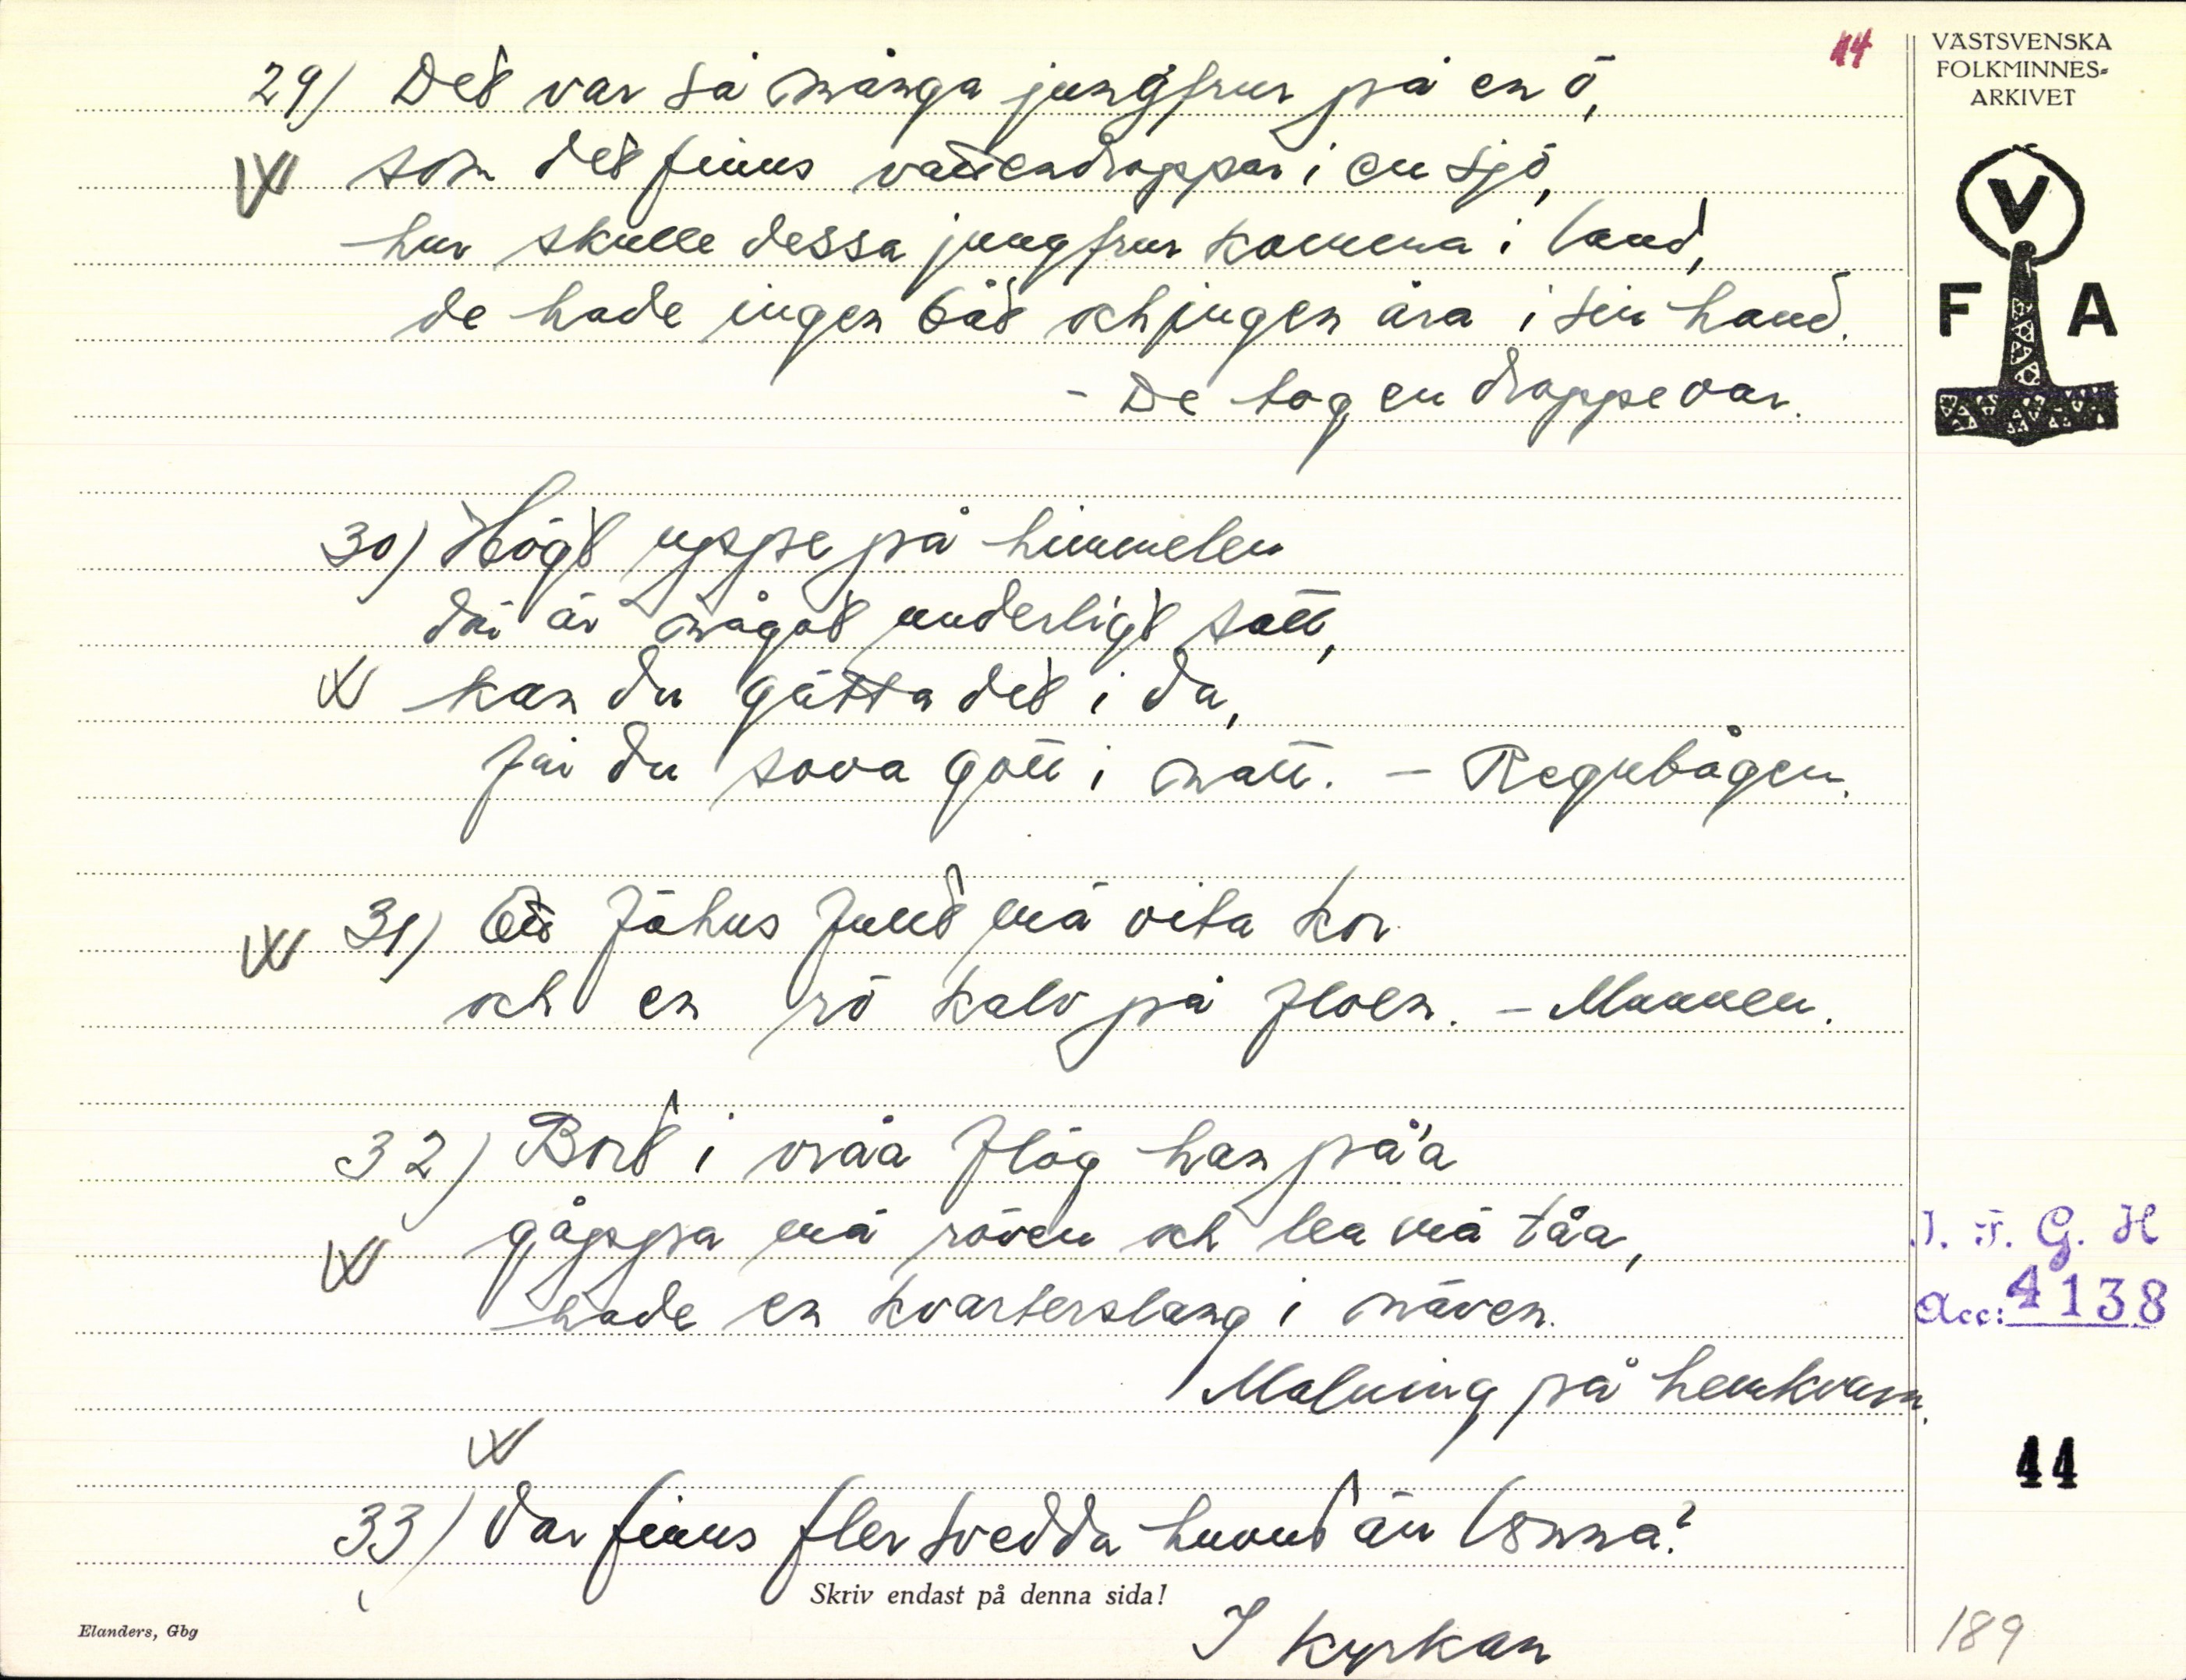 14
VÄSTSVENSKA
FOLKMINNES-
ARKIVET
V
F A
29) Det var så många jungfrur på en ö,
som det finns vattendroppar i en sjö,
hur skulle dessa jungfrur komma i land,
de hade ingen båt och ingen åra i sin hand.
- De tog en droppe var.
30) Högt uppe på himmelen
där är något underligt satt,
kan du gätta det i da,
får du sova gott i natt. - Regnbågen.
31) Ett fähus fullt mä vita kor
och en rö kalv på floen. - Munnen.
32) Bort i vråa flög han på'a
gåppa mä röven och lea mä tåa,
hade en kvarterslang i näven.
Malning på hemkvarn.
33) Var finns fler tvedda huvud än lönna?
I kyrkan
J. F. G. H
Acc: 4138
44
Skriv endast på denna sida!
Elanders, Gbg
189